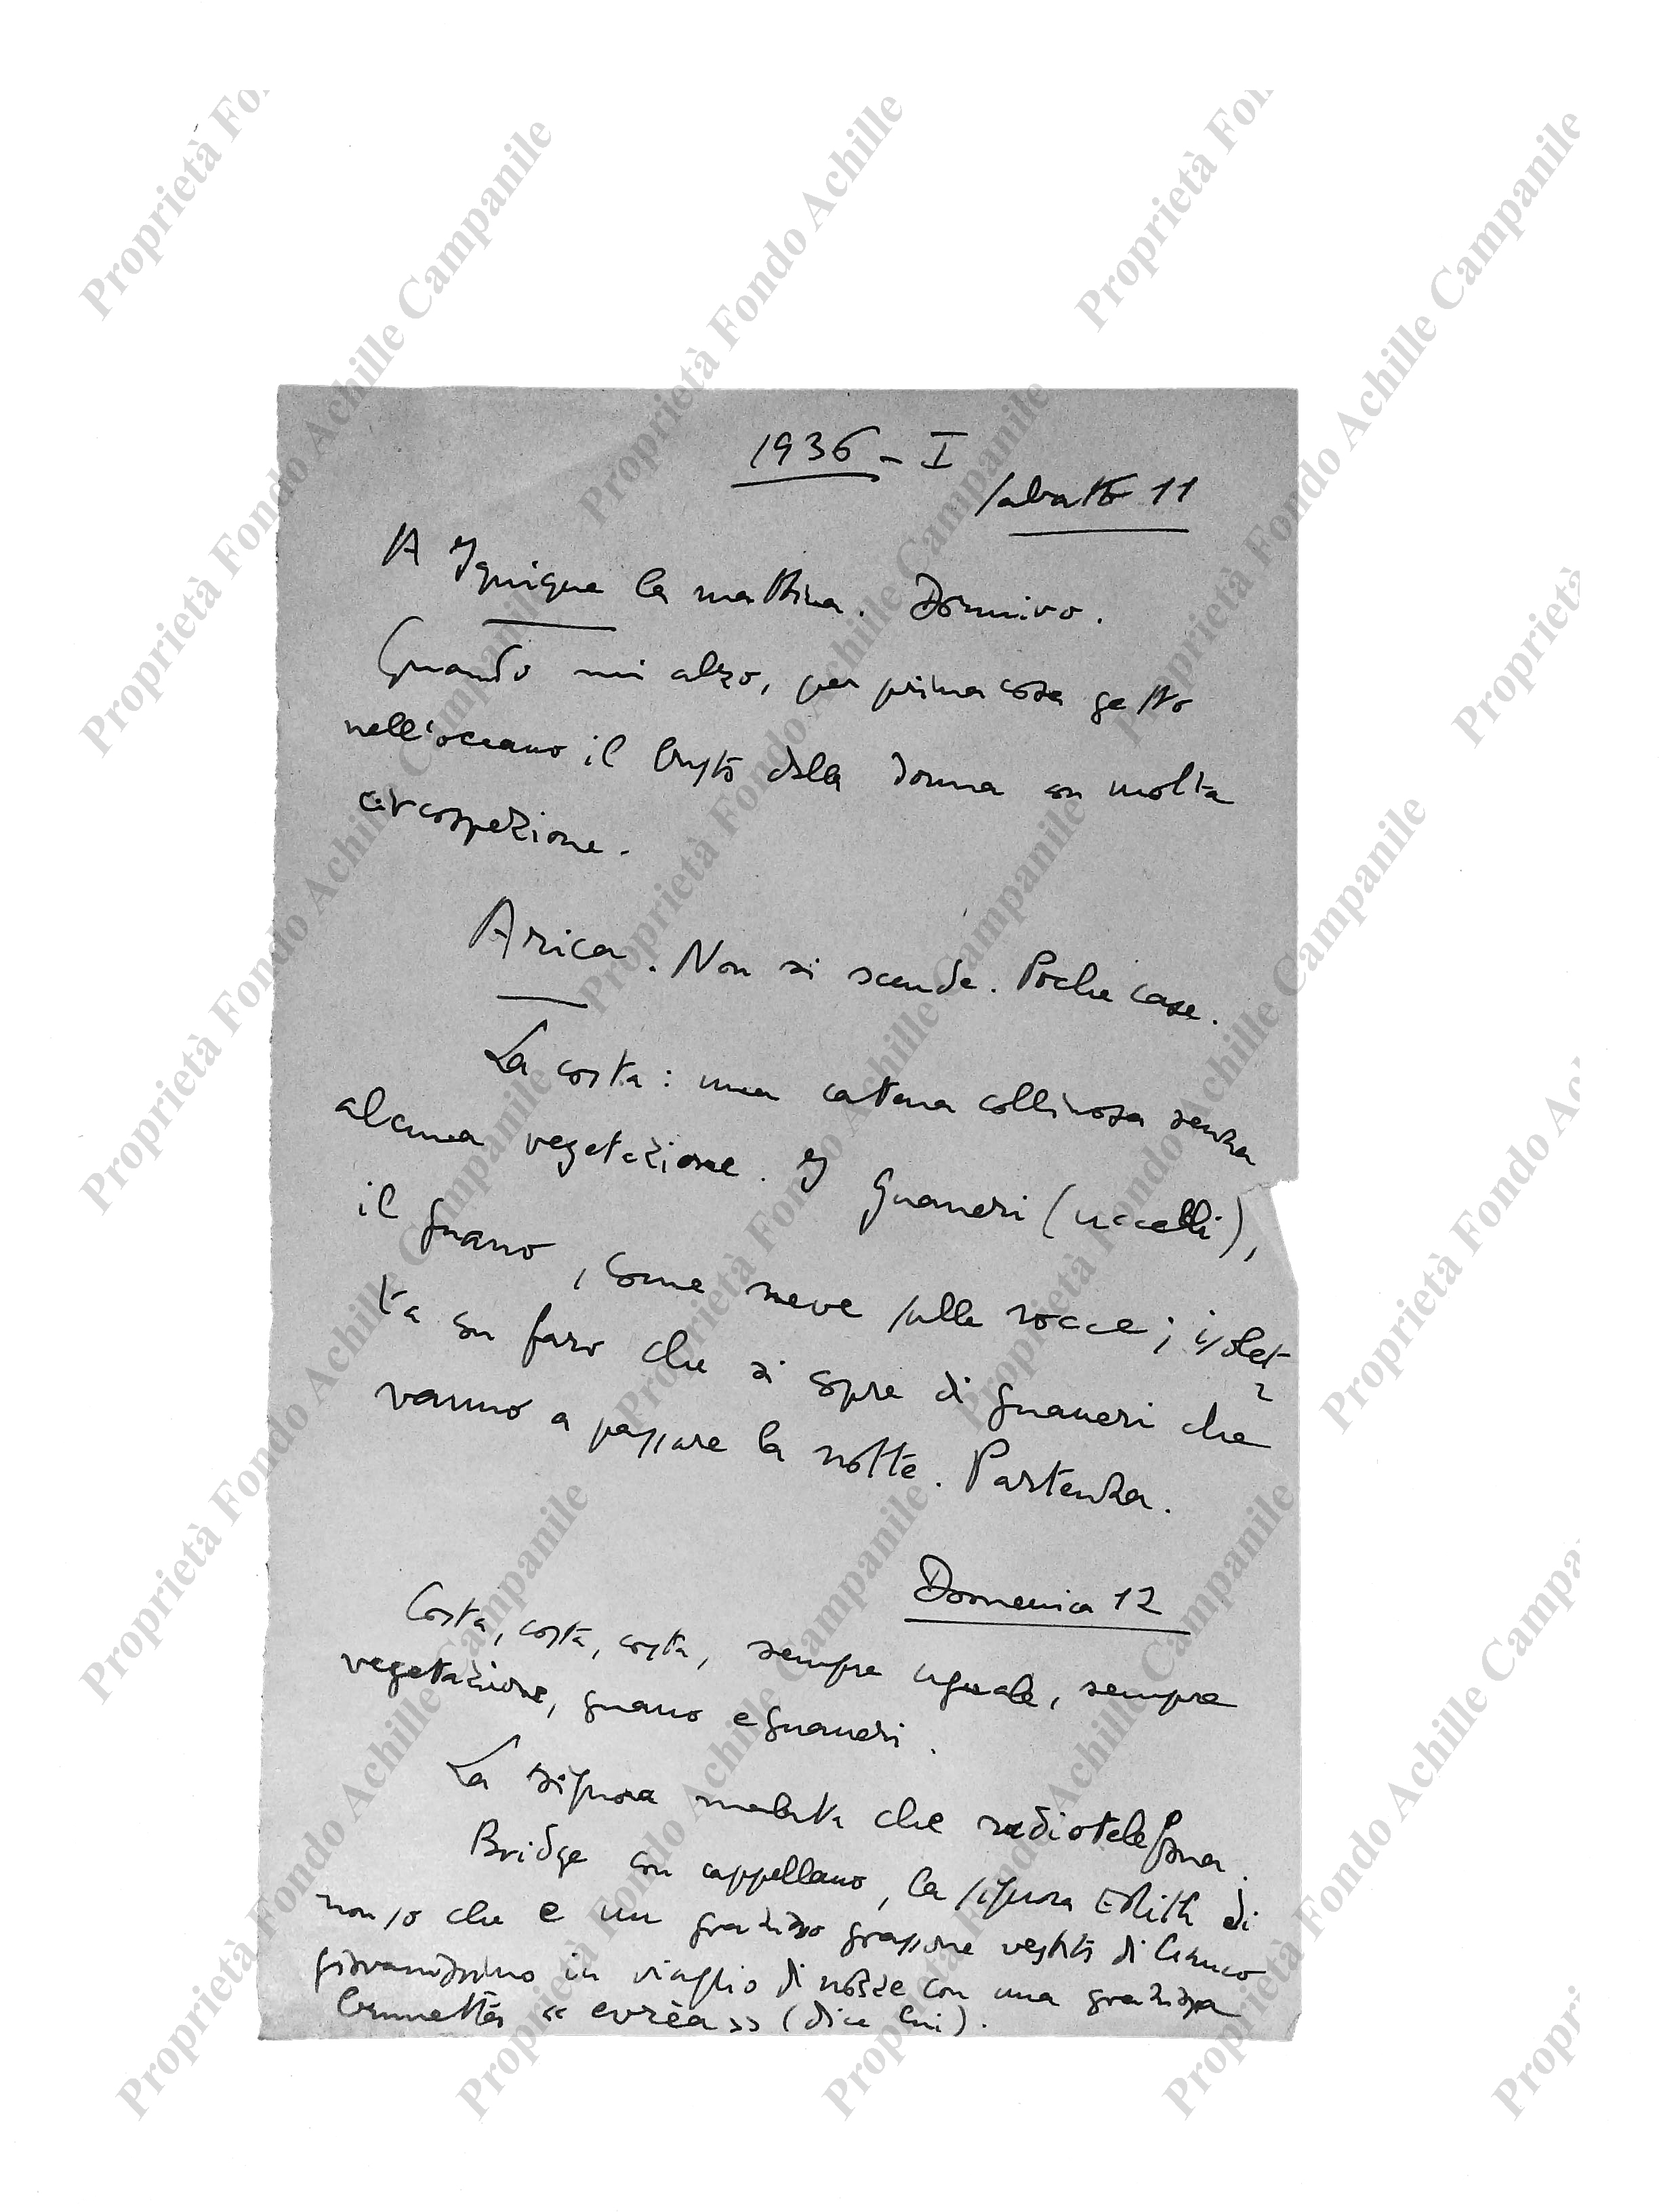 1936 - I
Sabato 11
A Iquique la mattina. Dormivo.
Quando mi alzo, per prima cosa getto
nell'oceano il busto della donna con molta
circospezione.
Arica. Non si scende. Poche case.
La costa: una catena collinosa senza
alcuna vegetazione. I guaneri (uccelli),
il guano, come neve sulle rocce; isolet-
ta con faro che si copre di guaneri che
vanno a passare la notte. Partenza.
Domenica 12
Costa, costa, costa, sempre uguale, sempre
vegetazione, guano e guaneri.
La signora malata che radiotelefona.
Bridge con cappellano, la signora Edith di
non so che e un grazioso grassone vestito di bianco
giovanissimo in viaggio di nozze con una graziosa
brunetta « evrèa » (dice lui).
Proprietà Fondo Achille Campanile